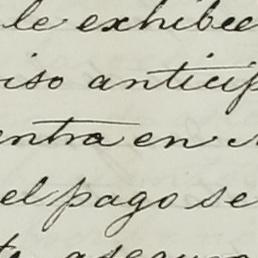 le exhibee
iso anticip
entra en
el pago se
te asegura